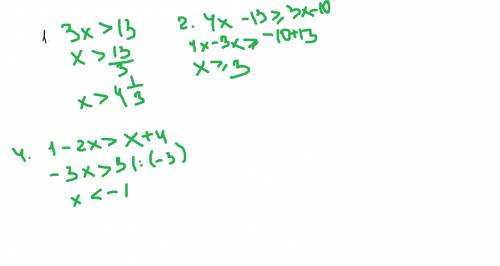 1. 3x > 13
x > 13/3
x > 4 1/3
2. 4x - 13 ≥ 3x - 10
4x - 3x ≥ -10 + 13
x ≥ 3
4. 1 - 2x > x + 4
-3x > 3 |: (-3)
x < -1